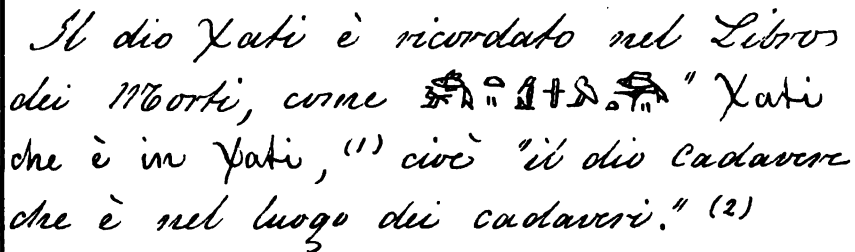 Il dio χati è ricordato nel Libro
dei Morti, come " χati
che è in χati, (1) cioè "il dio cadavere
che è nel luogo dei cadaveri." (2)